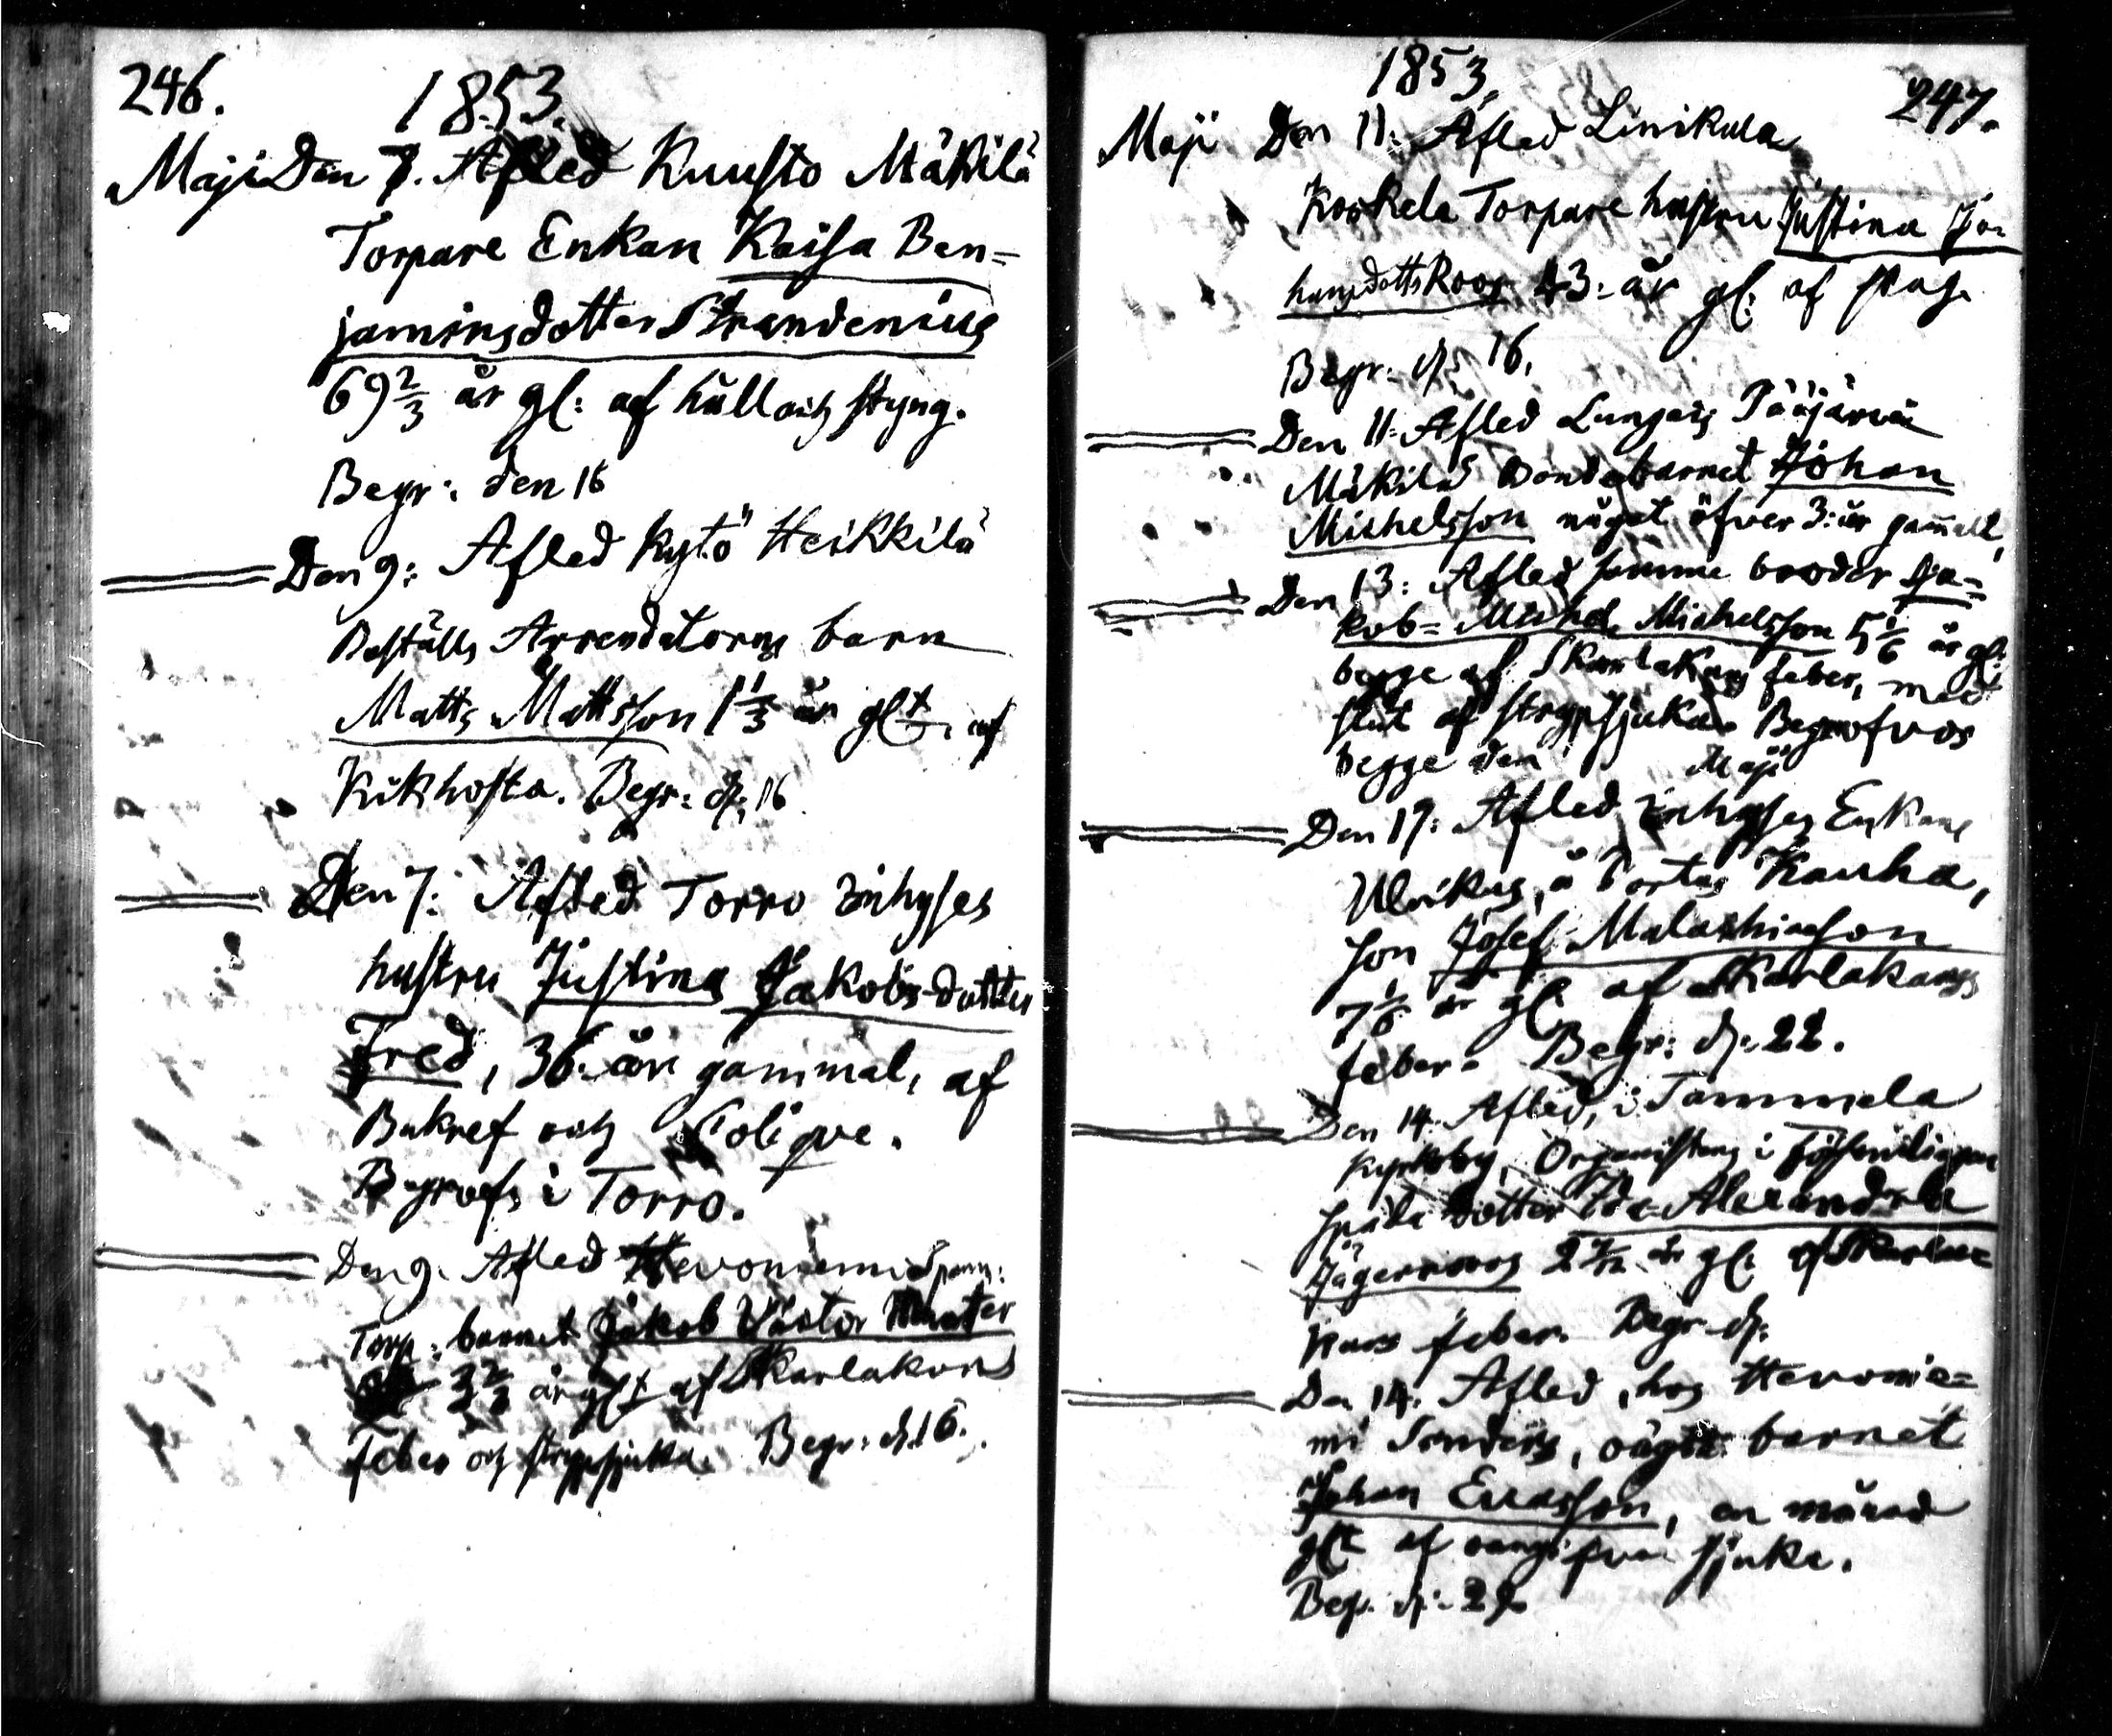 246.
1853.
Maji Den 7. Afled Kuusto Mäkilä
Torpare Enkan Kaisa Ben=
jaminsdotter Strandenius
69 2/3 år gl: af håll och styng.
Begr: den 16
Den 9: Afled Kytö Heikkilä
Beställs Arrendatorns barn
Matts Mattsson 1 1/3 år glt. af
Kikhosta. Begr: d. 16
Den 7: Afled Torro inhyses
hustru Justina Jakobs-dotter
Fred, 36 år gammal, af
Bukref och Colique.
Begrofs i Torro.
Den 9. Afled Hevoniemi
Torp: barnet Jakob Victor
3 2/3 år glt af Skarlakans
feber och strypsjuka. Begr: d. 16.
1853.
247.
Maji Den 11: Afled Linikula
Koskela Torpare hustru Justina Jo=
hansdottr Roos 43: år gl: af slag.
Begr: d: 16.
Den 11: Afled Lunkais Pääjärvi
Mäkilä Bondebarnet Johan
Michelsson något öfver 3: år gammalt,
Den 13: Afled samme broder Ja=
kob= Michel Michelsson 5 1/6 år gl:
begge af Skarlakans feber, med
slut af strypsjuka. Begrofvos
begge den Maji
Den 17: Afled inhyses Enkans
Ulrikas, å Portas Kauha,
son Josef Malachiasson
7 1/6 år gl: af Skarlakans
feber. Begr: d: 22.
Den 14. Afled, i Tammela
Kyrkoby, Organistens i församlingen
späda dotter Ida Alexandra
Jägerroos 2 år gl: af Skarla=
kans feber. Begr. d:
Den 14. Afled, hos Hevonie=
mi, oägta barnet
Johan Evasson, en månad
glt af oangifven sjuka.
Begr. d: 29